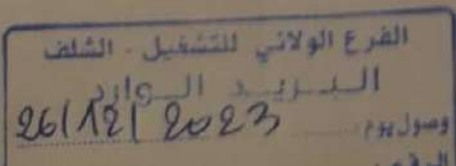 الفرع الولائي للتشغيل - الشلف
البريد الوارد
وصول يوم 26/12/2023
الرقم